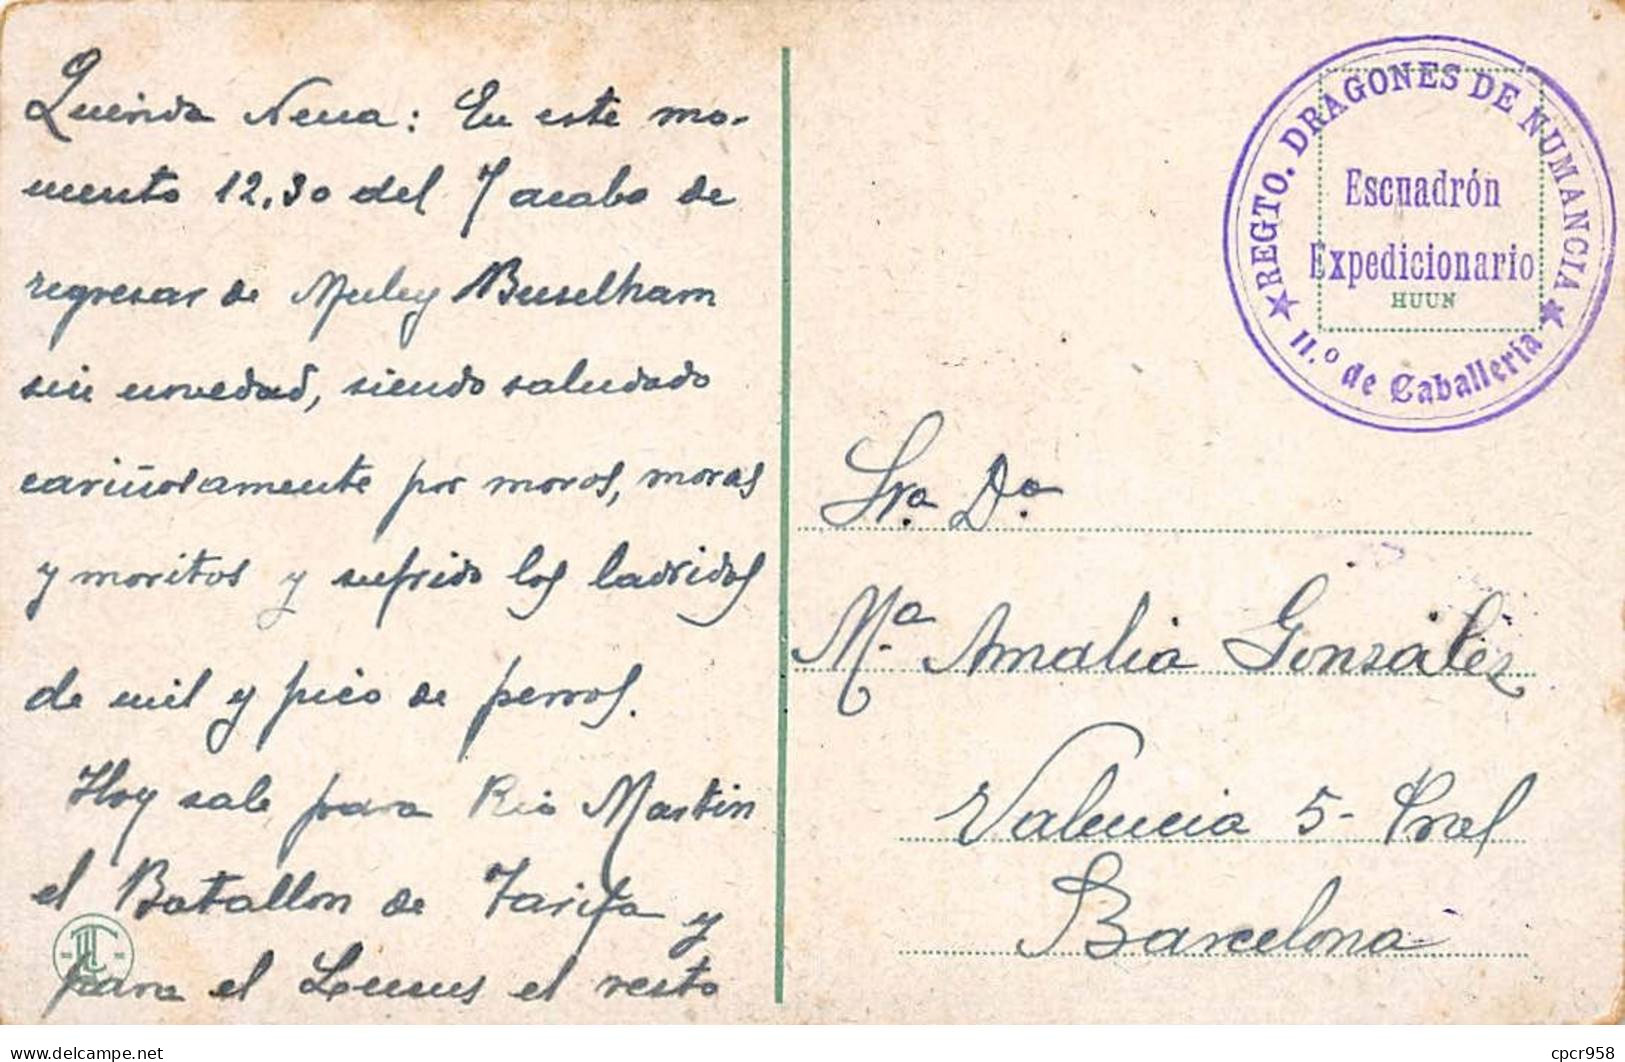 Querida Nena: En este mo-
mento 12,30 del 7 acabo de
regresar de Muley Buselham
sin novedad, siendo saludado
cariñosamente por moros, moras
y moritos y sufrido los ladridos
de mil y pico de perros.
Hoy sale para Rio Martin
el Batallon de Tarifa y
para el Lunus el resto
REGTO. DRAGONES DE NUMANCIA
Escuadrón
Expedicionario
HUUN
11.º de Caballería
Sra Da
Ma Amalia González
Valencia 5- Pral
Barcelona
cpcr958